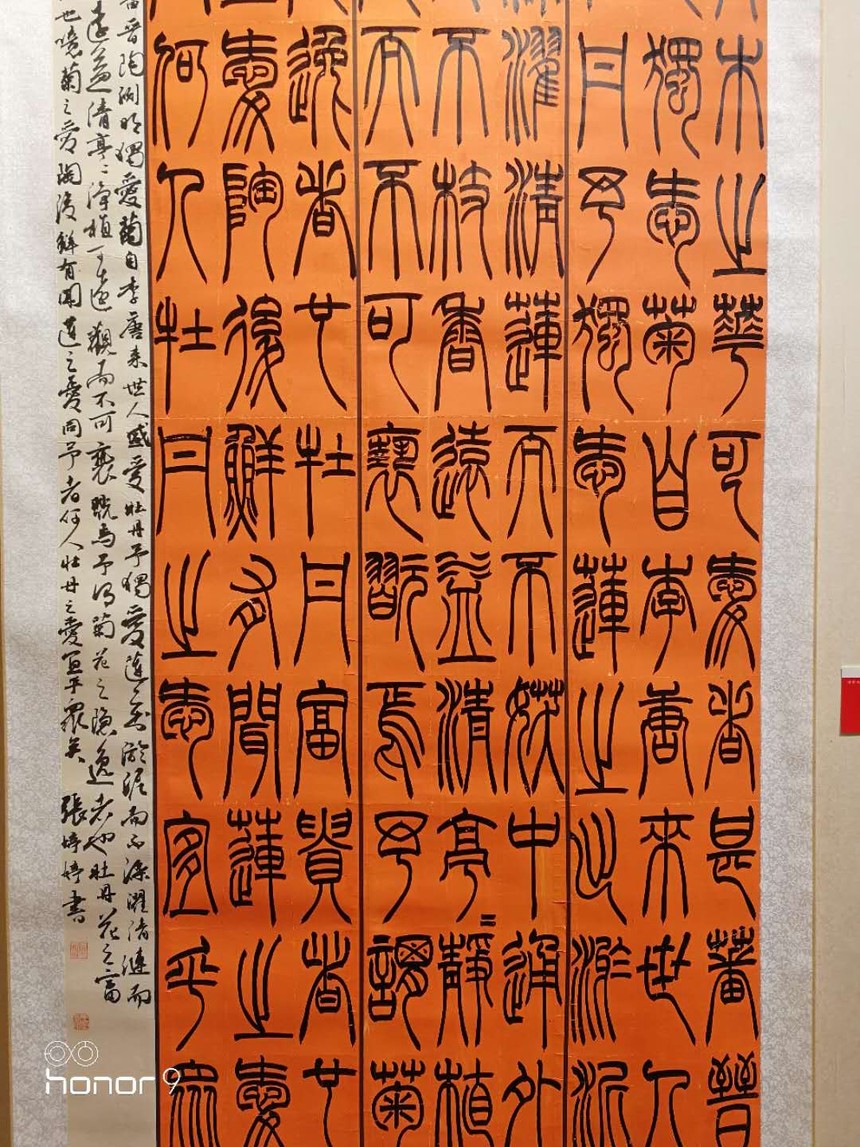 木之華可愛者甚蕃晉
獨愛菊自李唐來世人
丹予獨愛蓮之出淤泥
濯清蓮而不妖中通外
不枝香遠益清亭=靜植
而不可褻翫焉予謂菊
逸者也牡丹富貴者也
愛陶後鮮有聞蓮之愛
何人牡丹之愛宜乎眾
蕃晉陶淵明獨愛菊自李唐來世人盛愛牡丹予獨愛蓮之出淤泥而不染濯清漣而
遠益清亭々淨植可遠觀而不可褻翫焉予謂菊花之隱逸者也牡丹花之富
也噫菊之愛陶後鮮有聞蓮之愛同予者何人牡丹之愛宜乎眾矣 張婷婷書
honor 9